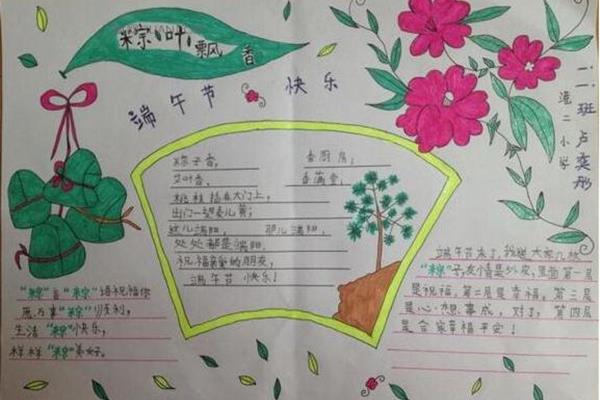 粽叶飘香
端午节 快乐
二二班 卢奕彤
港二小学
粽子香， 香厨房；
艾叶香， 香满堂，
桃枝插在大门上，
出门一望麦儿黄；
这儿端阳， 那儿端阳，
处处都是端阳。
祝福亲爱的朋友，
端午节 快乐！
"粽"与"粽"语祝福你
愿万事"粽"顺利，
生活"粽"快乐，
样样"粽"美好。
端午节来了，我送大家几枚
"粽"子，友情是外皮，里面第一层
是祝福，第二层是幸福，第三层
是心想事成，对了，第四层
是合家幸福平安！